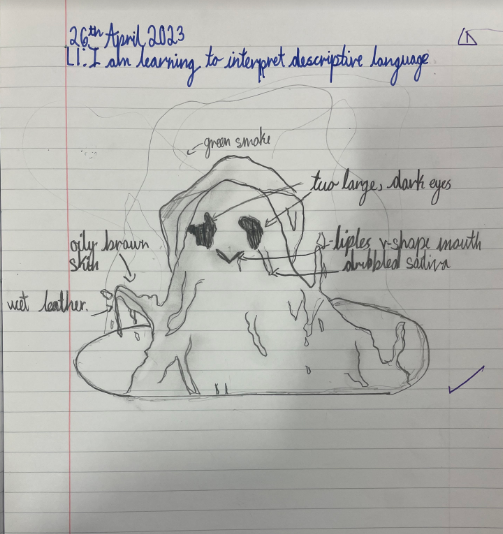 26th April 2023
LI: I am learning to interpret descriptive language
green smoke
two large, dark eyes
oily brown
skin
liples v-shape mouth
dribbled saliva
wet leather.